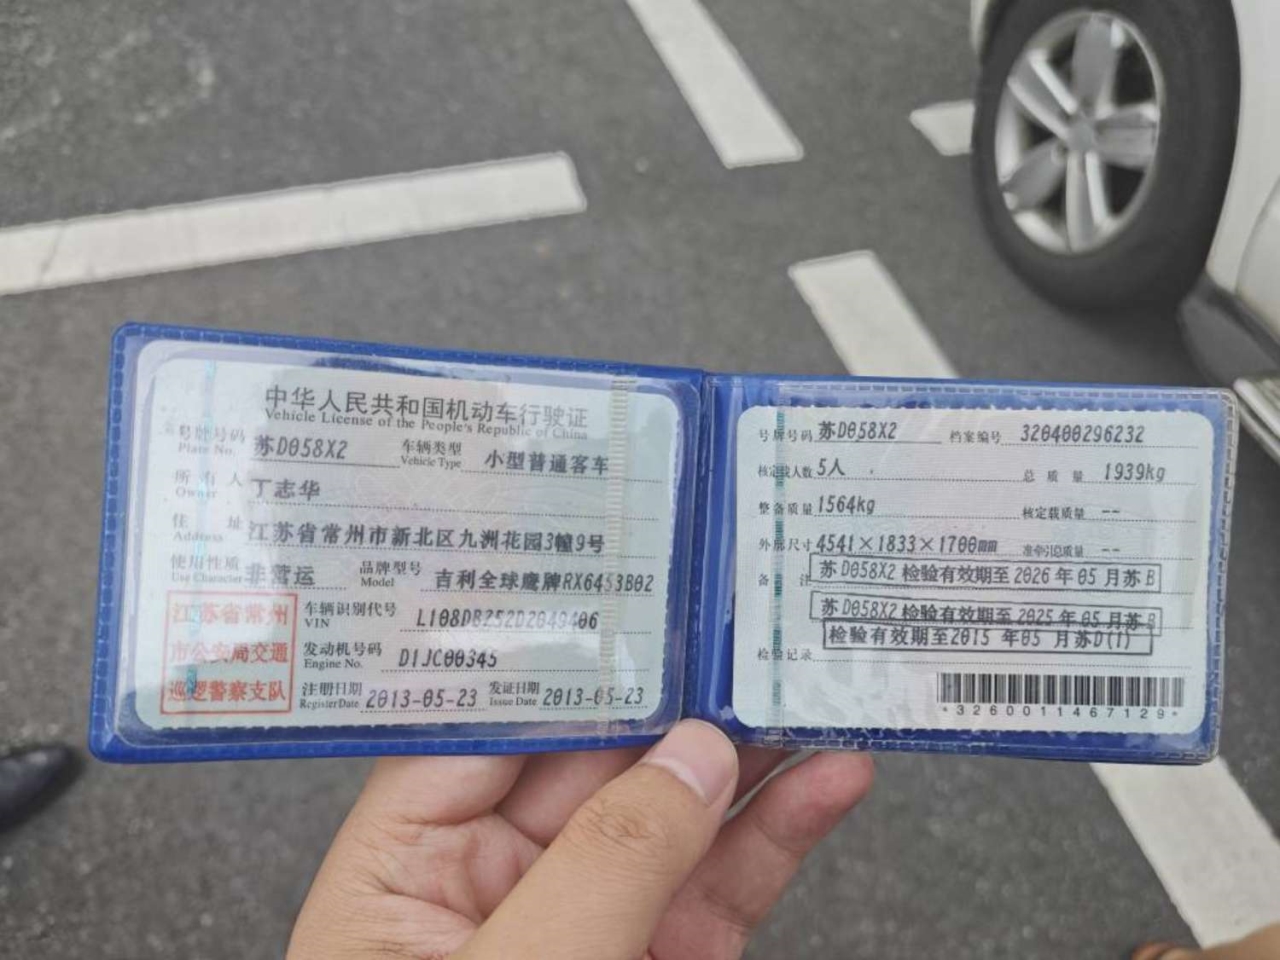 中华人民共和国机动车行驶证
Vehicle License of the People's Republic of China
号牌号码 苏D058X2 车辆类型 小型普通客车
Plate No. Vehicle Type
所有人 丁志华
Owner
住址 江苏省常州市新北区九洲花园3幢9号
Address
使用性质 非营运 品牌型号 吉利全球鹰牌RX6453B02
Use Character Model
江苏省常州
市公安局交通
巡逻警察支队
车辆识别代号
VIN
发动机号码 D1JC00345
Engine No.
注册日期 2013-05-23 发证日期 2013-05-23
Register Date Issue Date
号牌号码 苏D058X2 档案编号 320400296232
核定载人数 5人 总质量 1939kg
整备质量 1564kg 核定载质量 --
外廓尺寸 4541×1833×1700mm 准牵引总质量 --
备注 苏D058X2 检验有效期至2026年05月苏B
苏D058X2 检验有效期至2025年05月苏B
检验有效期至2015 年05 月苏D(1)
检验记录
*3260011467129*